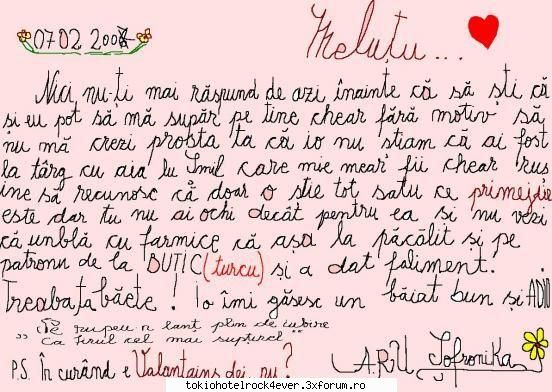 07.02.2007
Meluțu...
Nici nu-ți mai răspund de azi înainte că să ști că
și eu pot să mă supăr pe tine chear fără motiv să
nu mă crezi proasta ta că io nu știam că ai fost
la târg cu aia lu Imil care mie mear fii chear ruș
ine să recunosc că doar o știe tot satu ce primejdie
este dar tu nu ai ochi decât pentru ea și nu vezi
că umblă cu farmice că așa la păcălit și pe
patronu de la BUTIC (turcu) și a dat faliment.
Treaba ta băete! Io îmi găsesc un băiat bun și ADIO
rupeu n lanț plin de iubire
Ca firul cel mai supțirel"
P.S. În curând e Valantains dei, nu?
A.R.U Sofronika
tokiohotelrock4ever.3xforum.ro